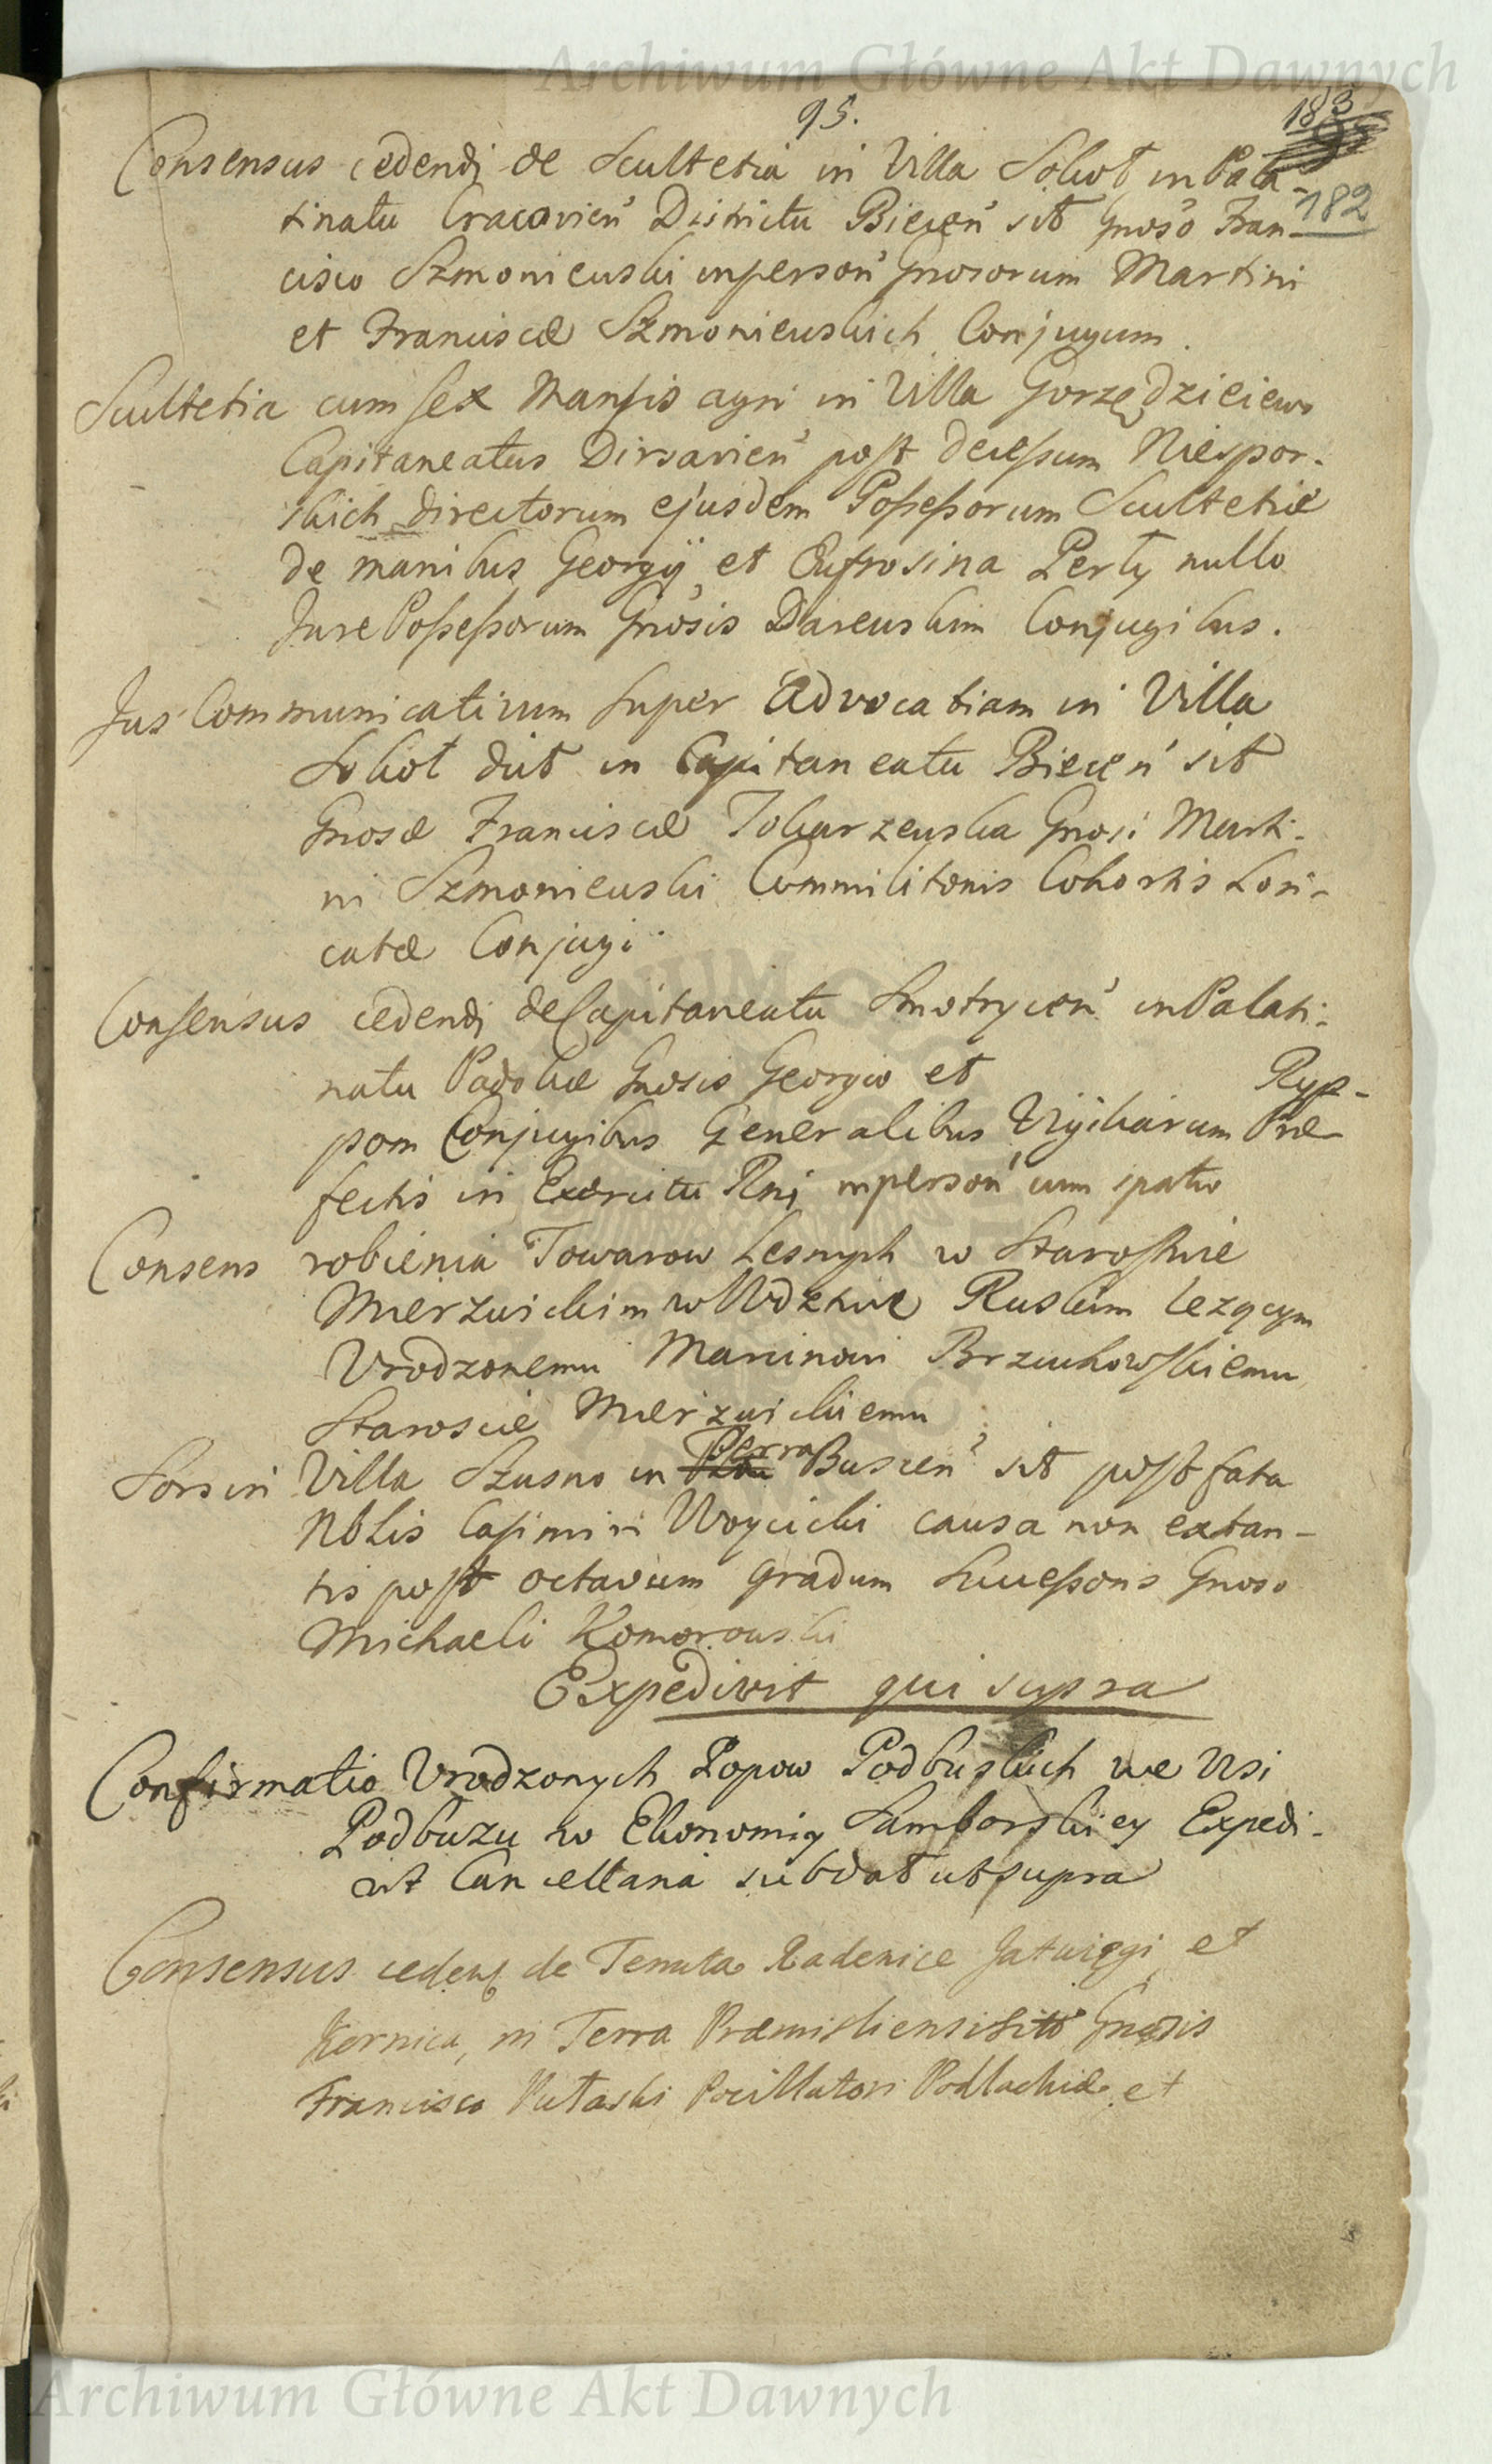 Archiwum Główne Akt Dawnych
95.
183
182
Consensus cedendi de Scultetia in Villa Sokoł in Pala-
tinatu Cracovień Districtu Biecen̄ sit Gnoso Fran-
cisco Szmoniewski in person̄ Gnosorum Martini
et Franciscæ Szmoniewskich Conjugum.
Scultetia cum sex Mansis agri in Villa Gorzędzieiewo
Capitaneatus Dirsavień post decessum Niespor-
skich directorum ejusdem Possessorum Scultetiæ
de manibus Georgij et Eufrosina Perty nullo
Jure Possessorum Gnosis Darewskim Conjugibus.
Jus Communicativum super Advocatiam in Villa
Sokoł dict in Capitaneatu Biecen̄ sit
Gnosæ Franciscæ Tokarzewska Gnosi Marti-
ni Szmoniewski Commilitonis Cohortis Lori-
catæ Conjugi.
Consensus cedendi de Capitaneatu Smotrycen̄ in Palati-
natu Podoliæ Gnosis Georgio et Ryp-
pom Conjugibus Generalibus Vigiliarum Præ-
fectis in Exercitu Rni in person̄ cum spatio
Consens robienia Towarow Lesnych w Starostwie
Mierzwickim w Wdztwie Ruskim lezącym
Urodzonemu Marcinowi Brzuchowskiemu
Staroscie Mierzwickiemu
Sors in Villa Szusno in Terra Buscen̄ sit post fata
Nblis Casimiri Woycicki causa non extan-
tis post octavum gradum Successoris Gnoso
Michaeli Komorowski
Expedivit qui supra
Confirmatio Urodzonych Popow Podbuskich we Wsi
Podbuzu w Ekonomiy Samborskiey Expedi-
vit Cancellaria sub dat ut supra
Consensus cedend de Tenuta Radenice Jatwięgi et
Kornica, in Terra Præmisliensi sitt Gnosis
Francisco Pułaski Pocillatori Podlachiæ et
Archiwum Główne Akt Dawnych